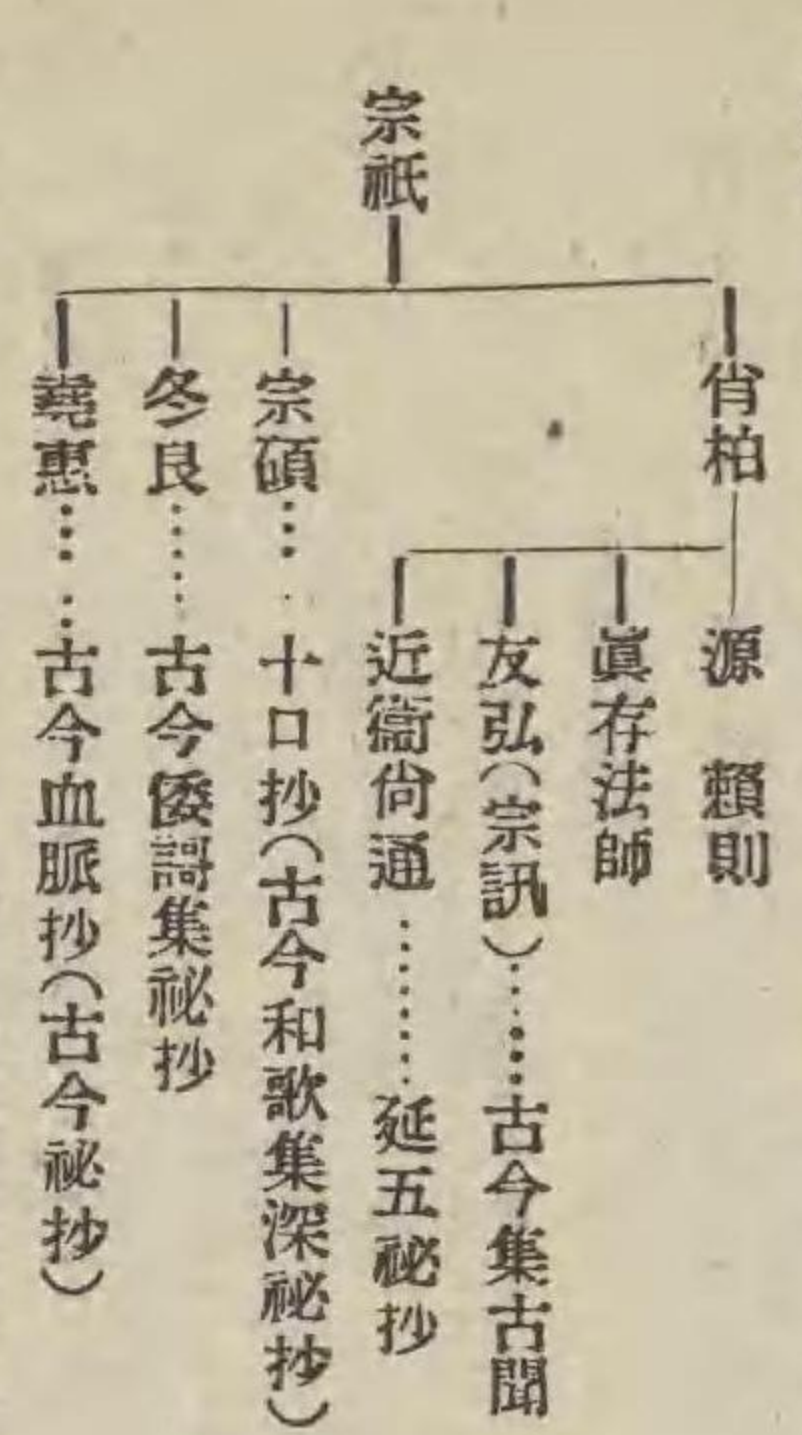 宗祇
肖柏
源　賴則
眞存法師
友弘(宗訊)……古今集古聞
近衞尙通……延五祕抄
宗碩……十口抄(古今和歌集深祕抄)
冬良……古今倭謌集祕抄
堯惠……古今血脈抄(古今祕抄)